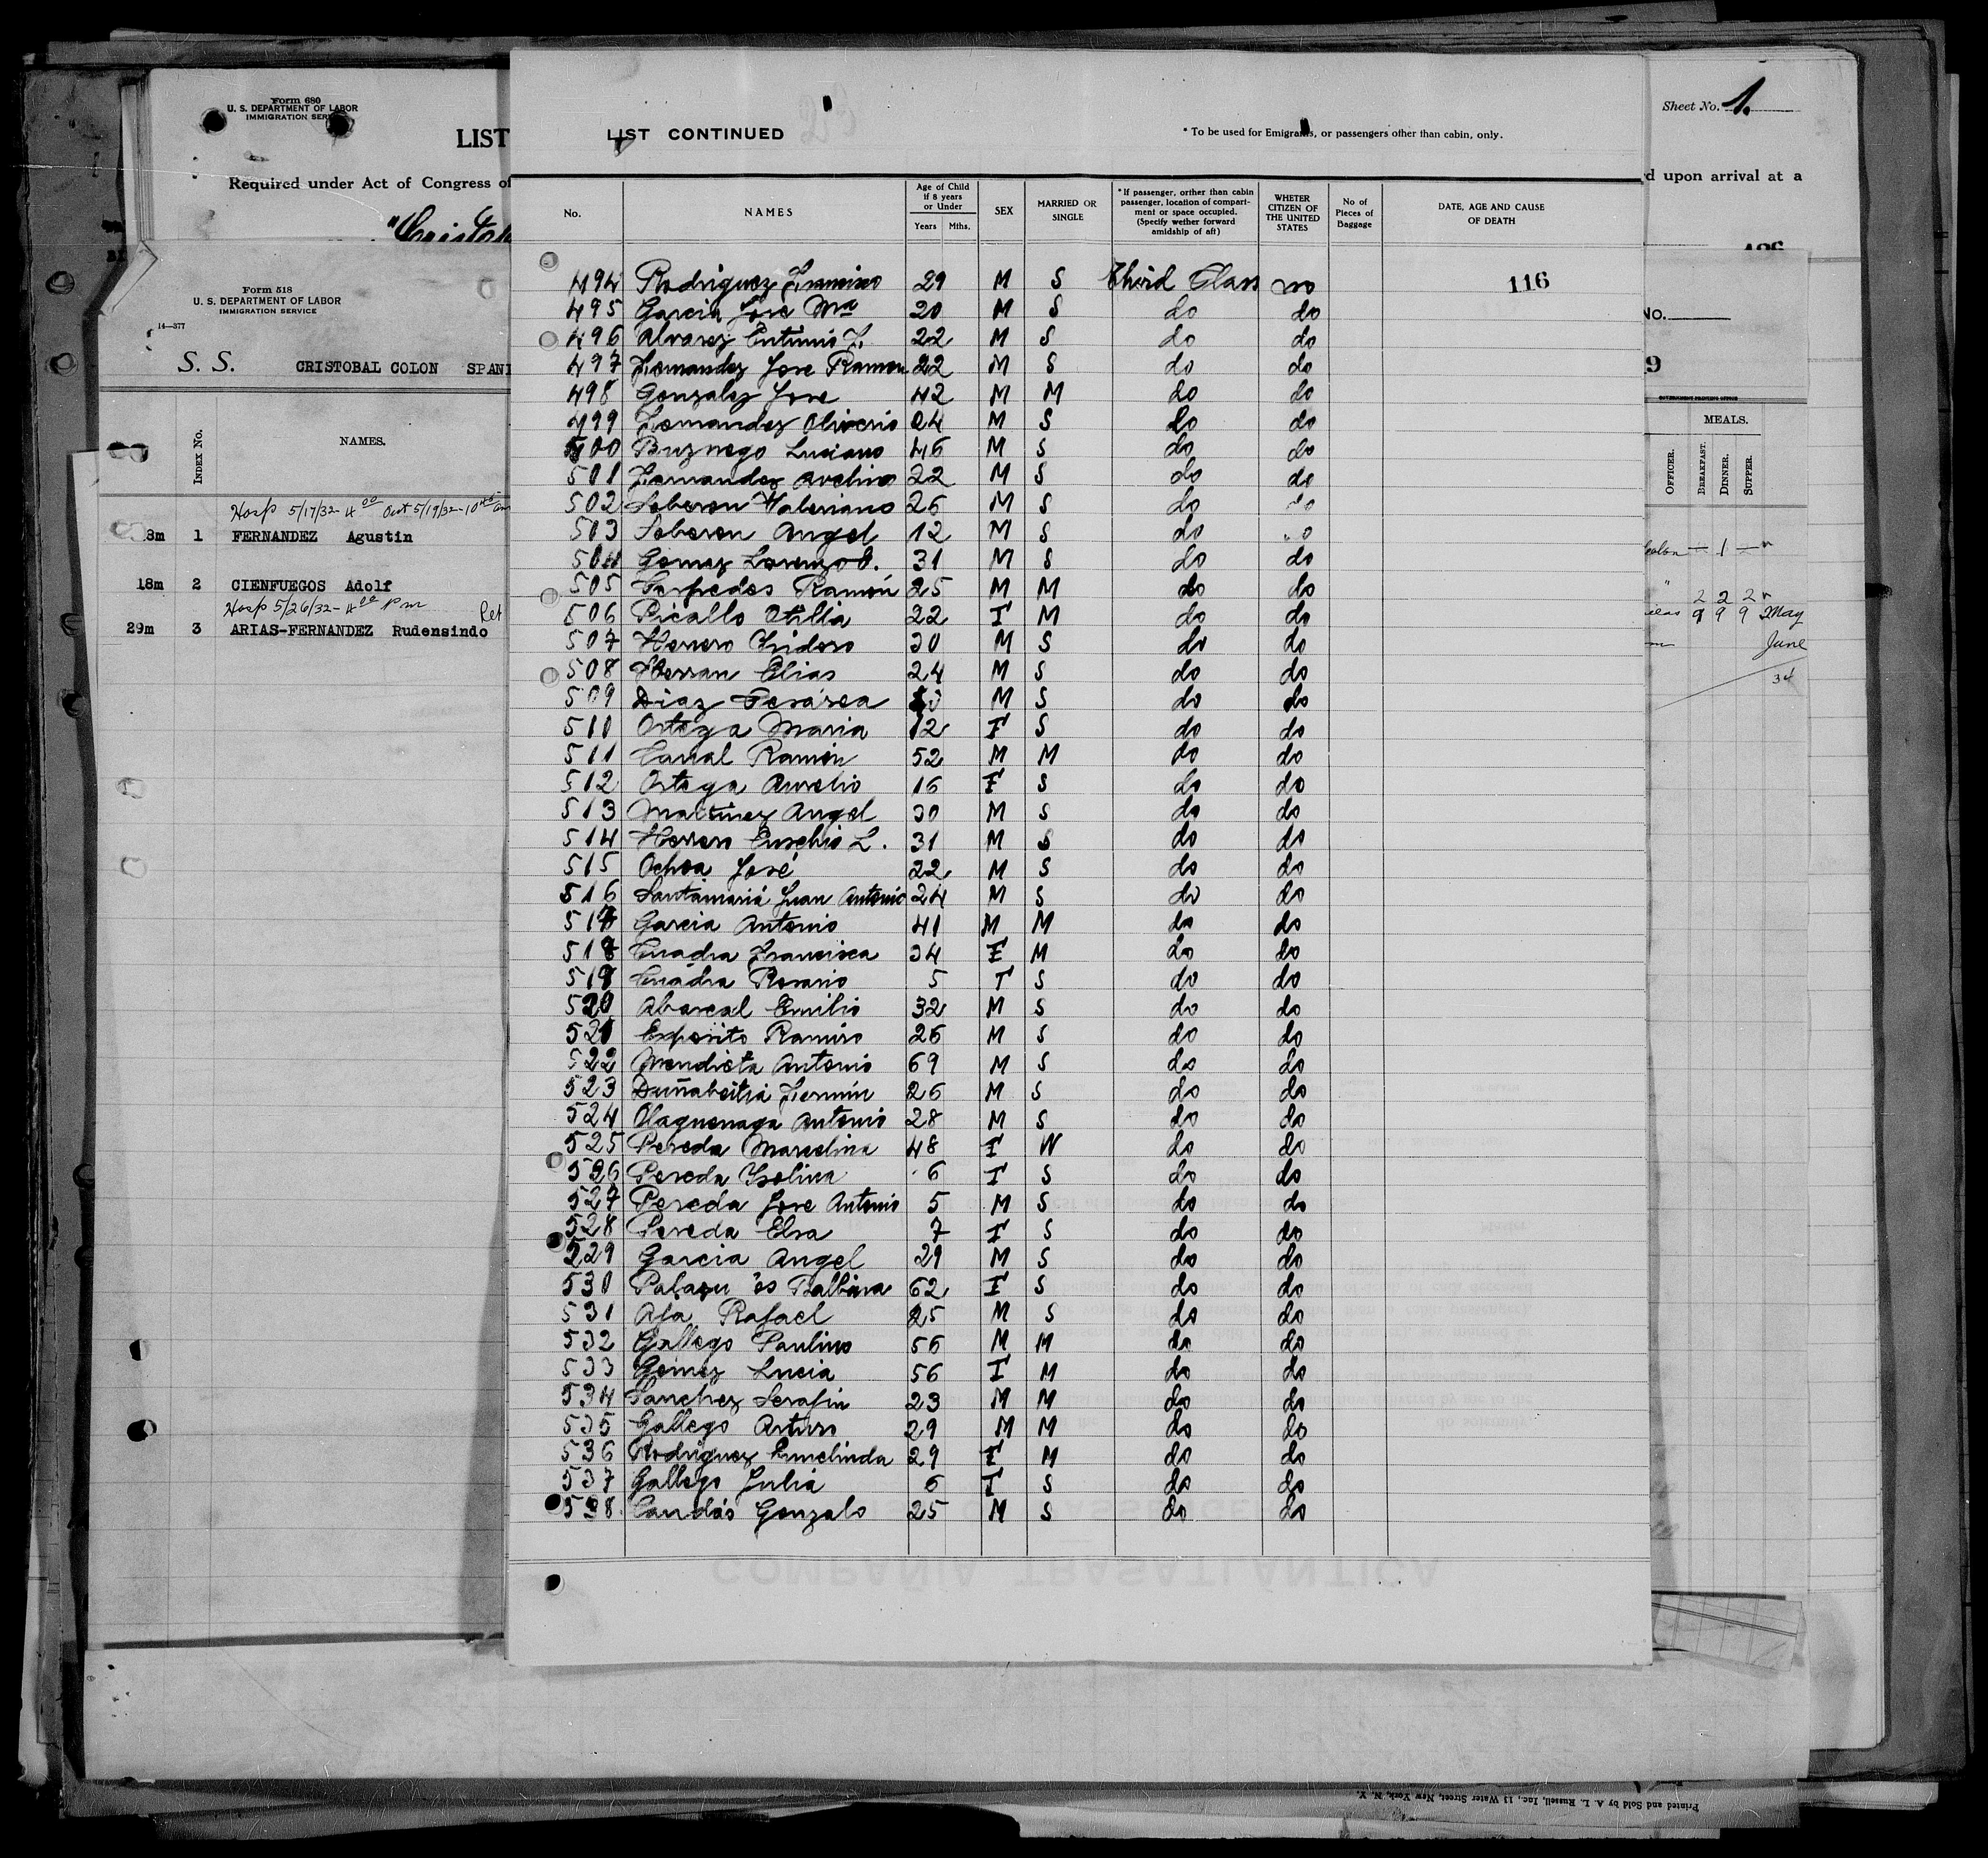 Form 680
U. S. DEPARTMENT OF LABOR
IMMIGRATION SERV
LIST
Required under Act of Congress of
"Cristob
Form 518
U. S. DEPARTMENT OF LABOR
IMMIGRATION SERVICE
14—377
S. S. CRISTOBAL COLON SPANI
INDEX No. NAMES.
Hosp 5/17/32- 4 00 Out 5/19/32- 10
8m 1 FERNANDEZ Agustin
18m 2 CIENFUEGOS Adolf
Hosp 5/26/32- 4 00 Pm
29m 3 ARIAS-FERNANDEZ Rudensindo
LIST CONTINUED
* To be used for Emigrants, or passengers other than cabin, only.
No. NAMES Age of Child if 8 years or Under Years Mths. SEX MARRIED OR SINGLE * If passenger, orther than cabin passenger, location of compartment or space occupied. (Specify wether forward amidship of aft) WHETER CITIZEN OF THE UNITED STATES No of Pieces of Baggage DATE, AGE AND CAUSE OF DEATH
494 Rodriguez Francisco 29 M S Third Class no 116
495 Garcia Jose Ma 20 M S do do
496 Alvarez Antonio F. 22 M S do do
497 Fernandez Jose Ramon 22 M S do do
498 Gonzalez Jose 42 M M do do
499 Fernandez Oliverio 24 M S do do
500 Buznego Luciano 46 M S do do
501 Fernandez Avelino 22 M S do do
502 Soberon Valeriano 26 M S do do
503 Soberon Angel 12 M S do do
504 Gomez Lorenzo O. 31 M S do do
505 Ramón 25 M M do do
506 Picallo Otilia 22 F M do do
507 Herrero Isidoro 30 M S do do
508 Herran Elias 24 M S do do
509 Diaz Cesárea M S do do
510 Ortega Maria 12 F S do do
511 Canal Ramón 52 M M do do
512 Ortega Aurelio 16 F S do do
513 Martinez Angel 30 M S do do
514 Herrero Eusebio L. 31 M S do do
515 Ochoa José 22 M S do do
516 Santamariá Juan Antonio 24 M S do do
517 Garcia Antonio 41 M M do do
518 Cuadra Francisca 34 F M do do
519 Cuadra Rosario 5 F S do do
520 Abascal Emilio 32 M S do do
521 Exposito Ramiro 26 M S do do
522 Mendieta Antonio 69 M S do do
523 Duñabeitia Fermin 26 M S do do
524 Olaguenaga Antonio 28 M S do do
525 Pereda Marcelina 48 F W do do
526 Pereda Isolina 6 F S do do
527 Pereda Jose Antonio 5 M S do do
528 Pereda Elsa 7 F S do do
529 Garcia Angel 29 M S do do
530 Balbina 62 F S do do
531 Asa Rafael 25 M S do do
532 Gallego Paulino 56 M M do do
533 Gomez Lucia 56 F M do do
534 Sanchez Serafin 23 M M do do
535 Gallego Arturo 29 M M do do
536 Rodriguez Ermelinda 29 F M do do
537 Gallego Julia 6 F S do do
538 Candás Gonzalo 25 M S do do
COMPAÑIA TRASATLÁNTICA
Sheet No. 1.
d upon arrival at a
No.
9
GOVERNMENT PRINTING OFFICE
MEALS.
OFFICER. BREAKFAST. DINNER. SUPPER.
— 1 —
2 2 2
9 9 9 May
June
34
Printed and Sold by A. L. Russell, Inc., 13 Water Street, New York, N. Y.